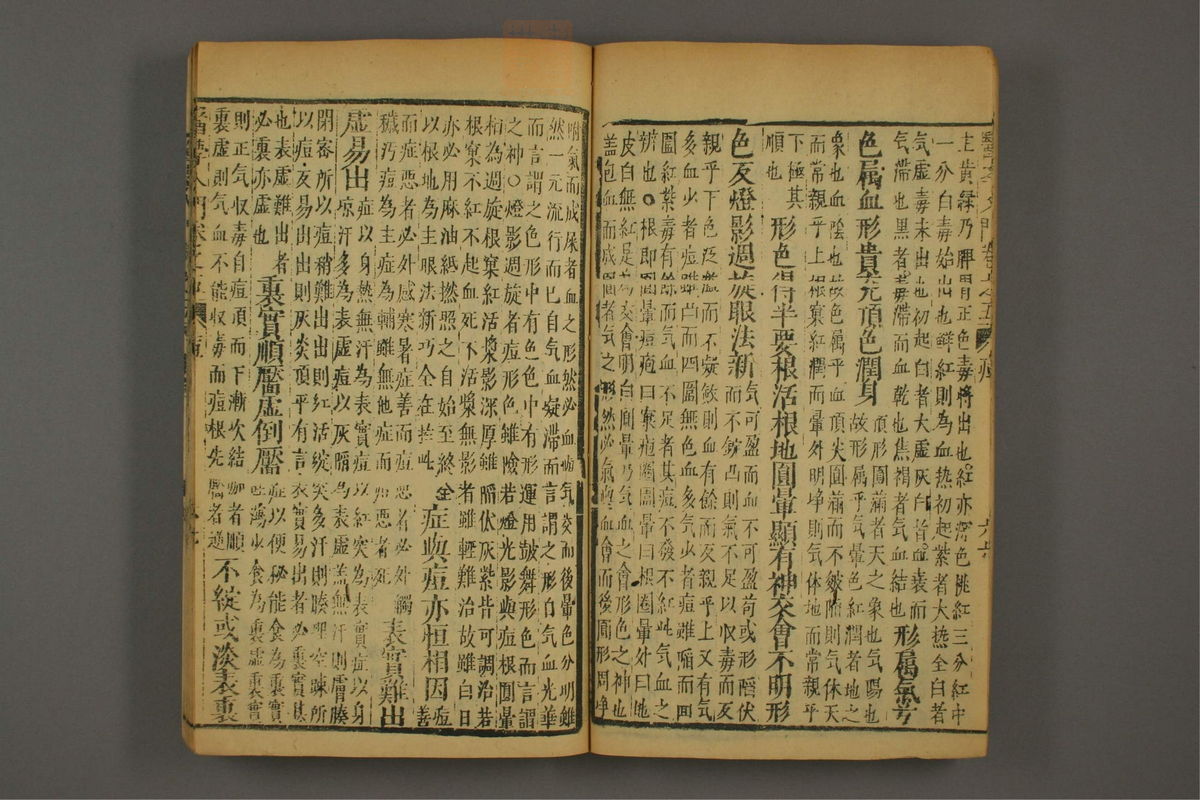 醫學入門 卷之五 痘 六十
主黄綠乃脾胃正色毒將出也紅亦常色桃紅三分紅中
一分白毒始出也鮮紅則為血热初起紫者大热全白者
气虛毒未出也初起白者大虛灰白者血衰而
气滯也黑者毒滯而血乾也焦褐者气血結也形屬氣兮
色屬血形貴尖頂色潤身
頂形圓滿者天之象也气陽也
故形屬乎气暈色紅潤者地之
象也血陰也故色屬乎血頂尖圓滿而不皺陷則气体天
而常親乎上根窠紅潤而暈外明净則气体地而常親乎
下極其
順也
形色得半要根活根地圓暈顯有神交會不明形
色反燈影週旋眼法新
气可盈而血不可盈苟或形陷伏
而不銳凸則氣不足以収毒而反
親乎下色泛濫而不凝斂則血有餘而反親乎上又有气
多血少者痘雖凸而四圍無色血多气少者痘雖陷而四
圍紅紫毒有餘而气血不足者其痘不發不紅此气血之
辨也○根即圈暈痘疱曰窠疱圈圓暈曰根圈暈外曰地
皮白無紅是為交會明白圓暈乃气血之會形色之神也
盖包血而成圓者气之形然必氣與血會而後圓形周净
附氣而成暈者血之形然必血與气交而後暈色分明雖
然一元流行而已自气血凝滯而言謂之形自气血光華
而言謂之色形中有色色中有形運用鼓舞形色而言謂
之神○燈影週旋者痘形色雖險若燈光影與痘根圓暈
相為週旋根窠紅活漿影深厚雖陷伏灰紫皆可調治若
根窠不紅不起血死不活漿無影者雖輕難治故雖白日
亦必用麻油紙撚照之自始至終
以根地為主眼法新巧全在於此
全症與痘亦恒相因
痘
善
而症惡者必外感寒暑症善而痘惡者必外觸
穢污痘為主症為輔雖無他症而痘惡者死
表實難出
虛易出
症以身熱無汗為表實痘以紅突為表實症以身
凉汗多為表虛痘以灰陷為表虛盖無汗則膚腠
閉密所以痘稍難出出則紅活綻突多汗則腠理空踈所
以痘反易出出則灰炎頂平有言表實易出者必裏實甚
也表虛難出者
必裏亦虛也
裏實順靨虛倒靨
症以便秘能食為裏實
泄瀉少食為裏虛裏實
則正气収毒自痘頂而下漸次結痂者順
裏虛則气血不能収毒而痘根先靨者逆
不綻或淡表裏